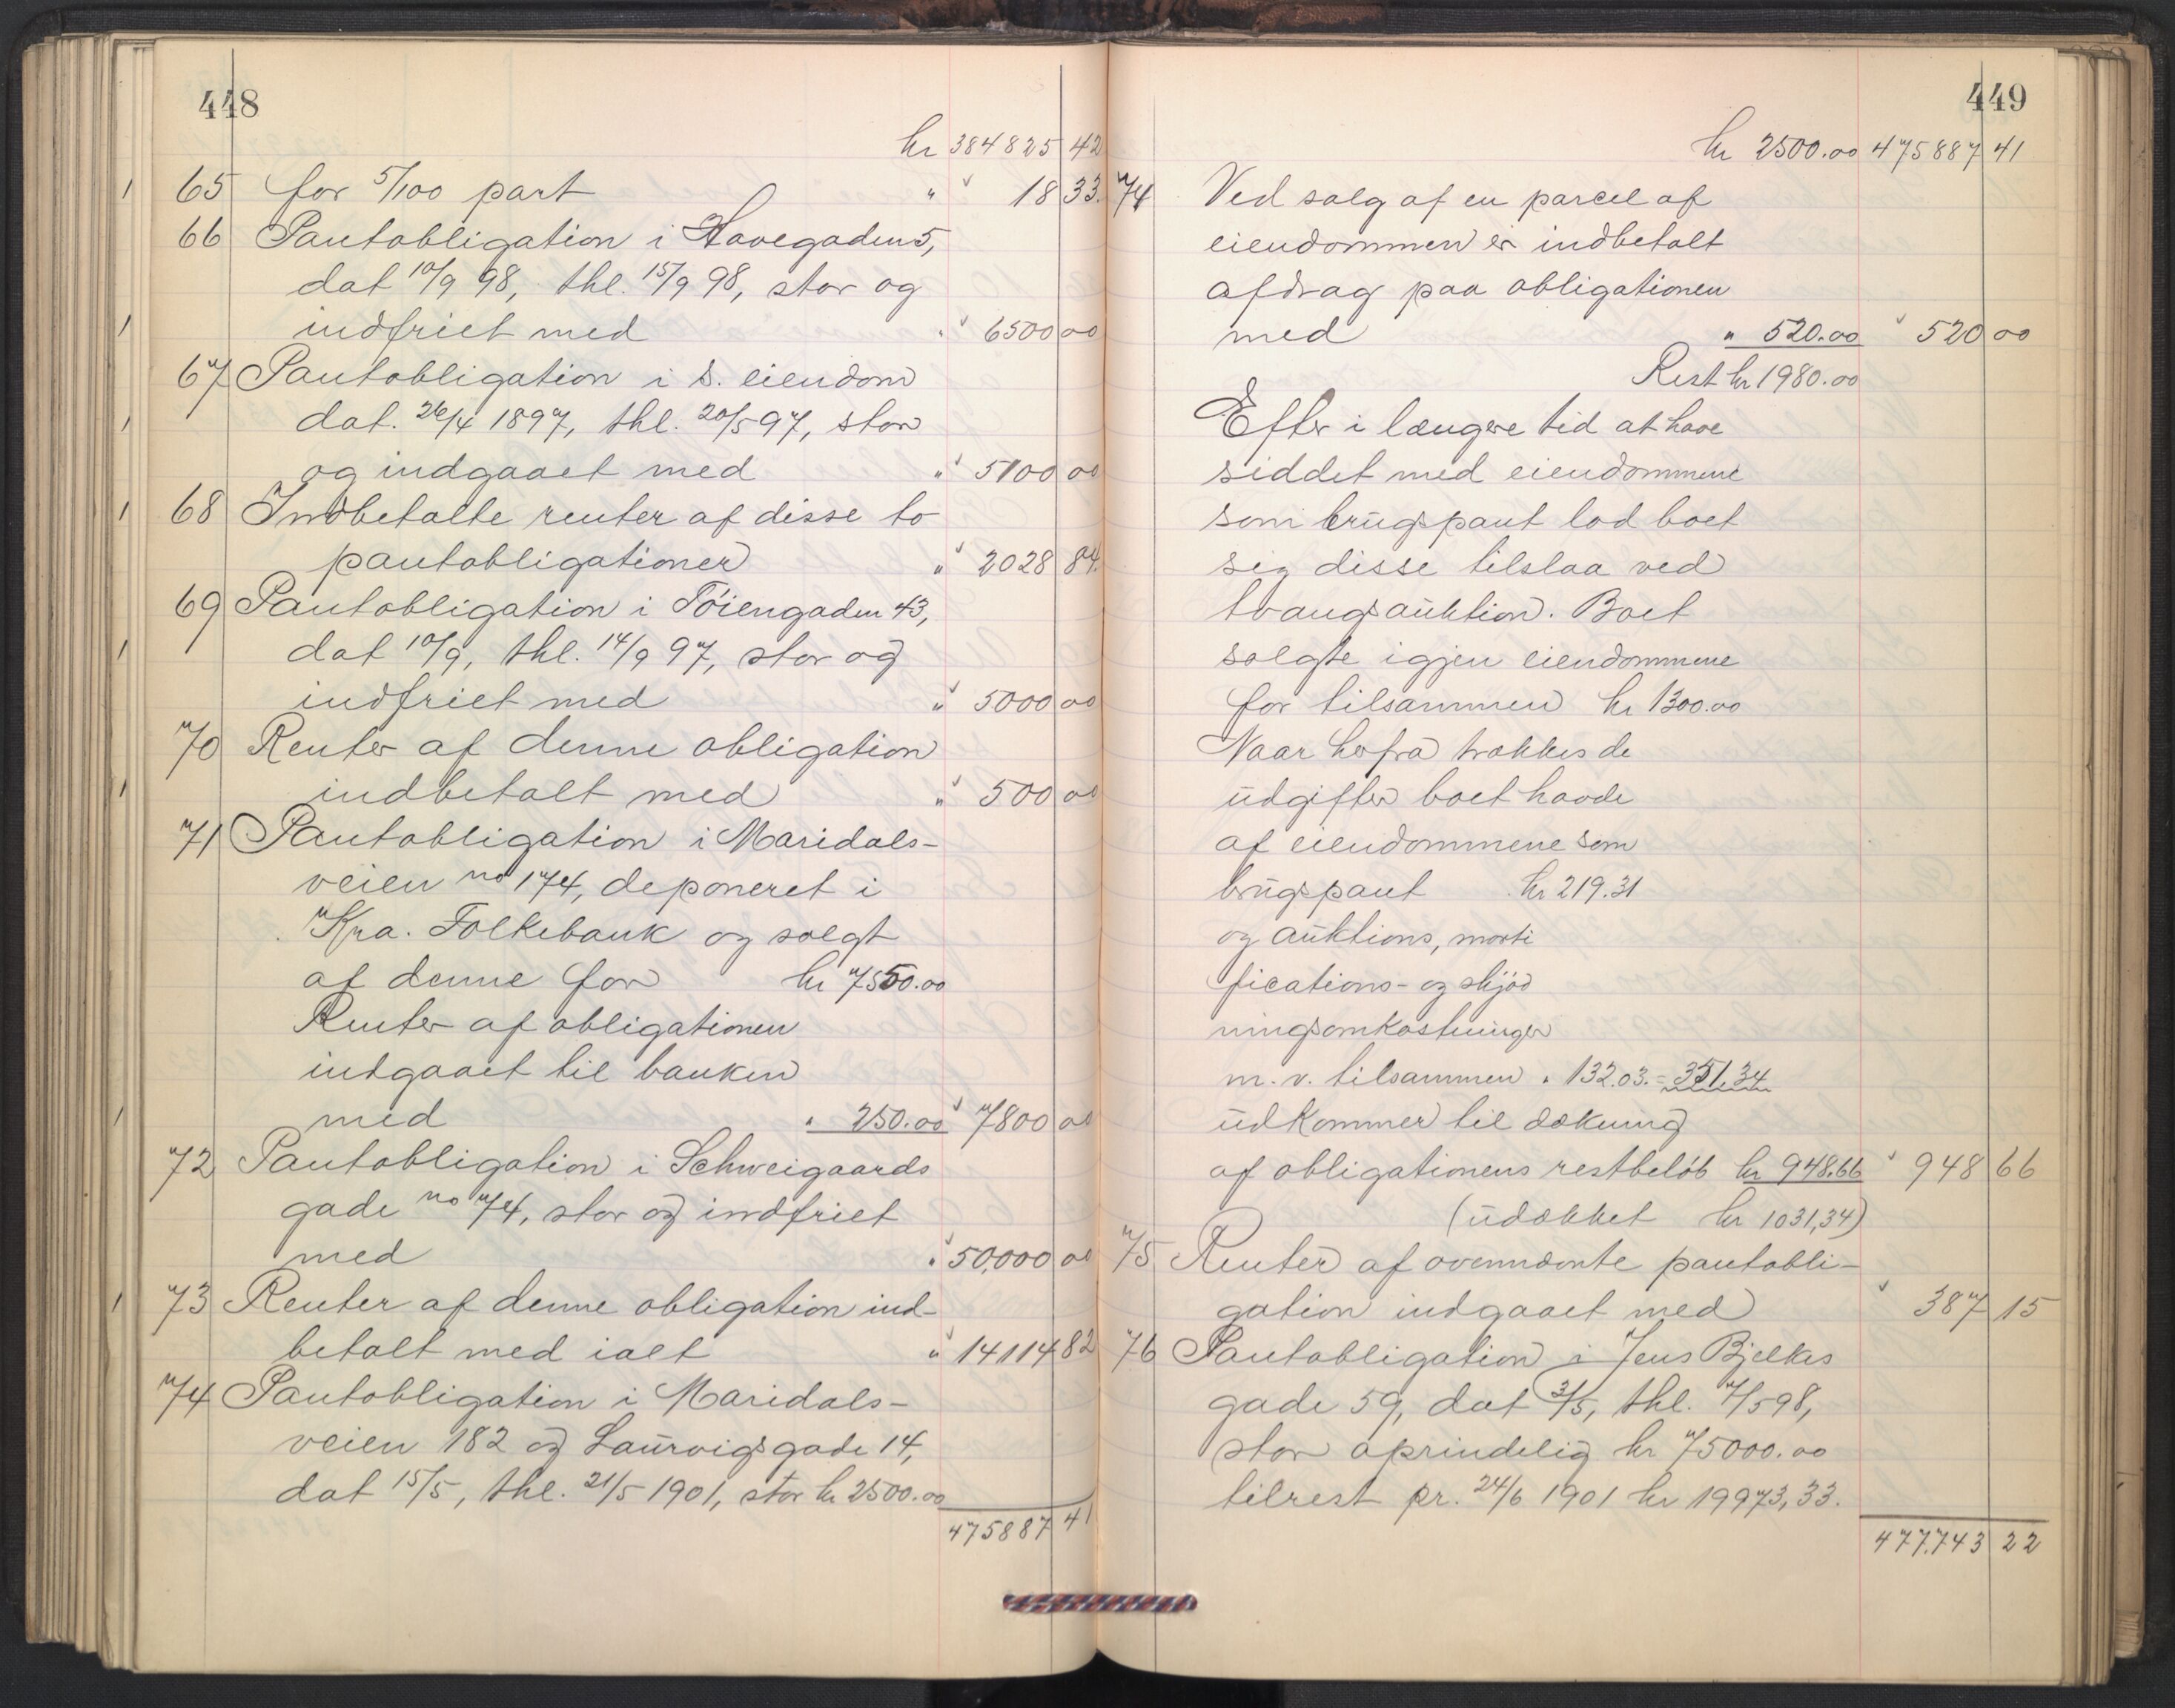 448
kr 384825 42
65 for 5/100 part " 18 33.
66 Pantobligation i Havegaden 5,
dat 10/9 98, thl. 15/9 98, stor og
indfriet med " 6500 00
67 Pantobligation i s. eiendom
dat. 26/4 1897, thl. 20/5 97, stor
og indgaaet med " 5100 00
68 Indbetalte renter af disse to
pantobligationer " 2028 84.
69 Pantobligation i Töiengaden 43,
dat 10/9, thl. 14/9 97, stor og
indfriet med " 5000 00
70 Renter af denne obligation
indbetalt med " 500 00
71 Pantobligation i Maridals-
veien no 174, deponeret i
Kra. Folkebank og solgt
af denne for kr 7550.00
Renter af obligationen
indgaaet til banken
med " 250.00 7800 00
72 Pantobligation i Schweigaards
gade no 74, stor og indfriet
med " 50,000 00
73 Renter af denne obligation ind-
betalt med ialt " 14114 82
74 Pantobligation i Maridals-
veien 182 og Laurvigsgade 14,
dat 15/5, thl. 21/5 1901, stor kr 2500.00
475887 41
449
kr 2500.00 475887 41
74 Ved salg af en parcel af
eiendommen er indbetalt
afdrag paa obligationen
med " 520.00 520 00
Rest kr 1980.00
Efter i længere tid at have
siddet med eiendommene
som brugspant lod boet
sig disse tilslaa ved
tvangsauktion. Boet
solgte igjen eiendommene
for tilsammen kr 1300.00
Naar herfra trækkes de
udgifter boet havde
af eiendommene som
brugspant kr 219.31
og auktions, morti
fications- og skjöd
ningsomkostninger
m. v. tilsammen " 132.03. = 351,34
udkommer til dækning
af obligationens restbelöb kr 948.66 948 66
(udækket kr 1031,34)
75 Renter af ovennævnte pantobli-
gation indgaaet med 387 15
76 Pantobligation i Jens Bjelkes
gade 59, dat 3/5, thl. 7/5 98,
stor oprindelig kr 75000.00
tilrest pr. 24/6 1901 kr 19973,33.
477.743 22